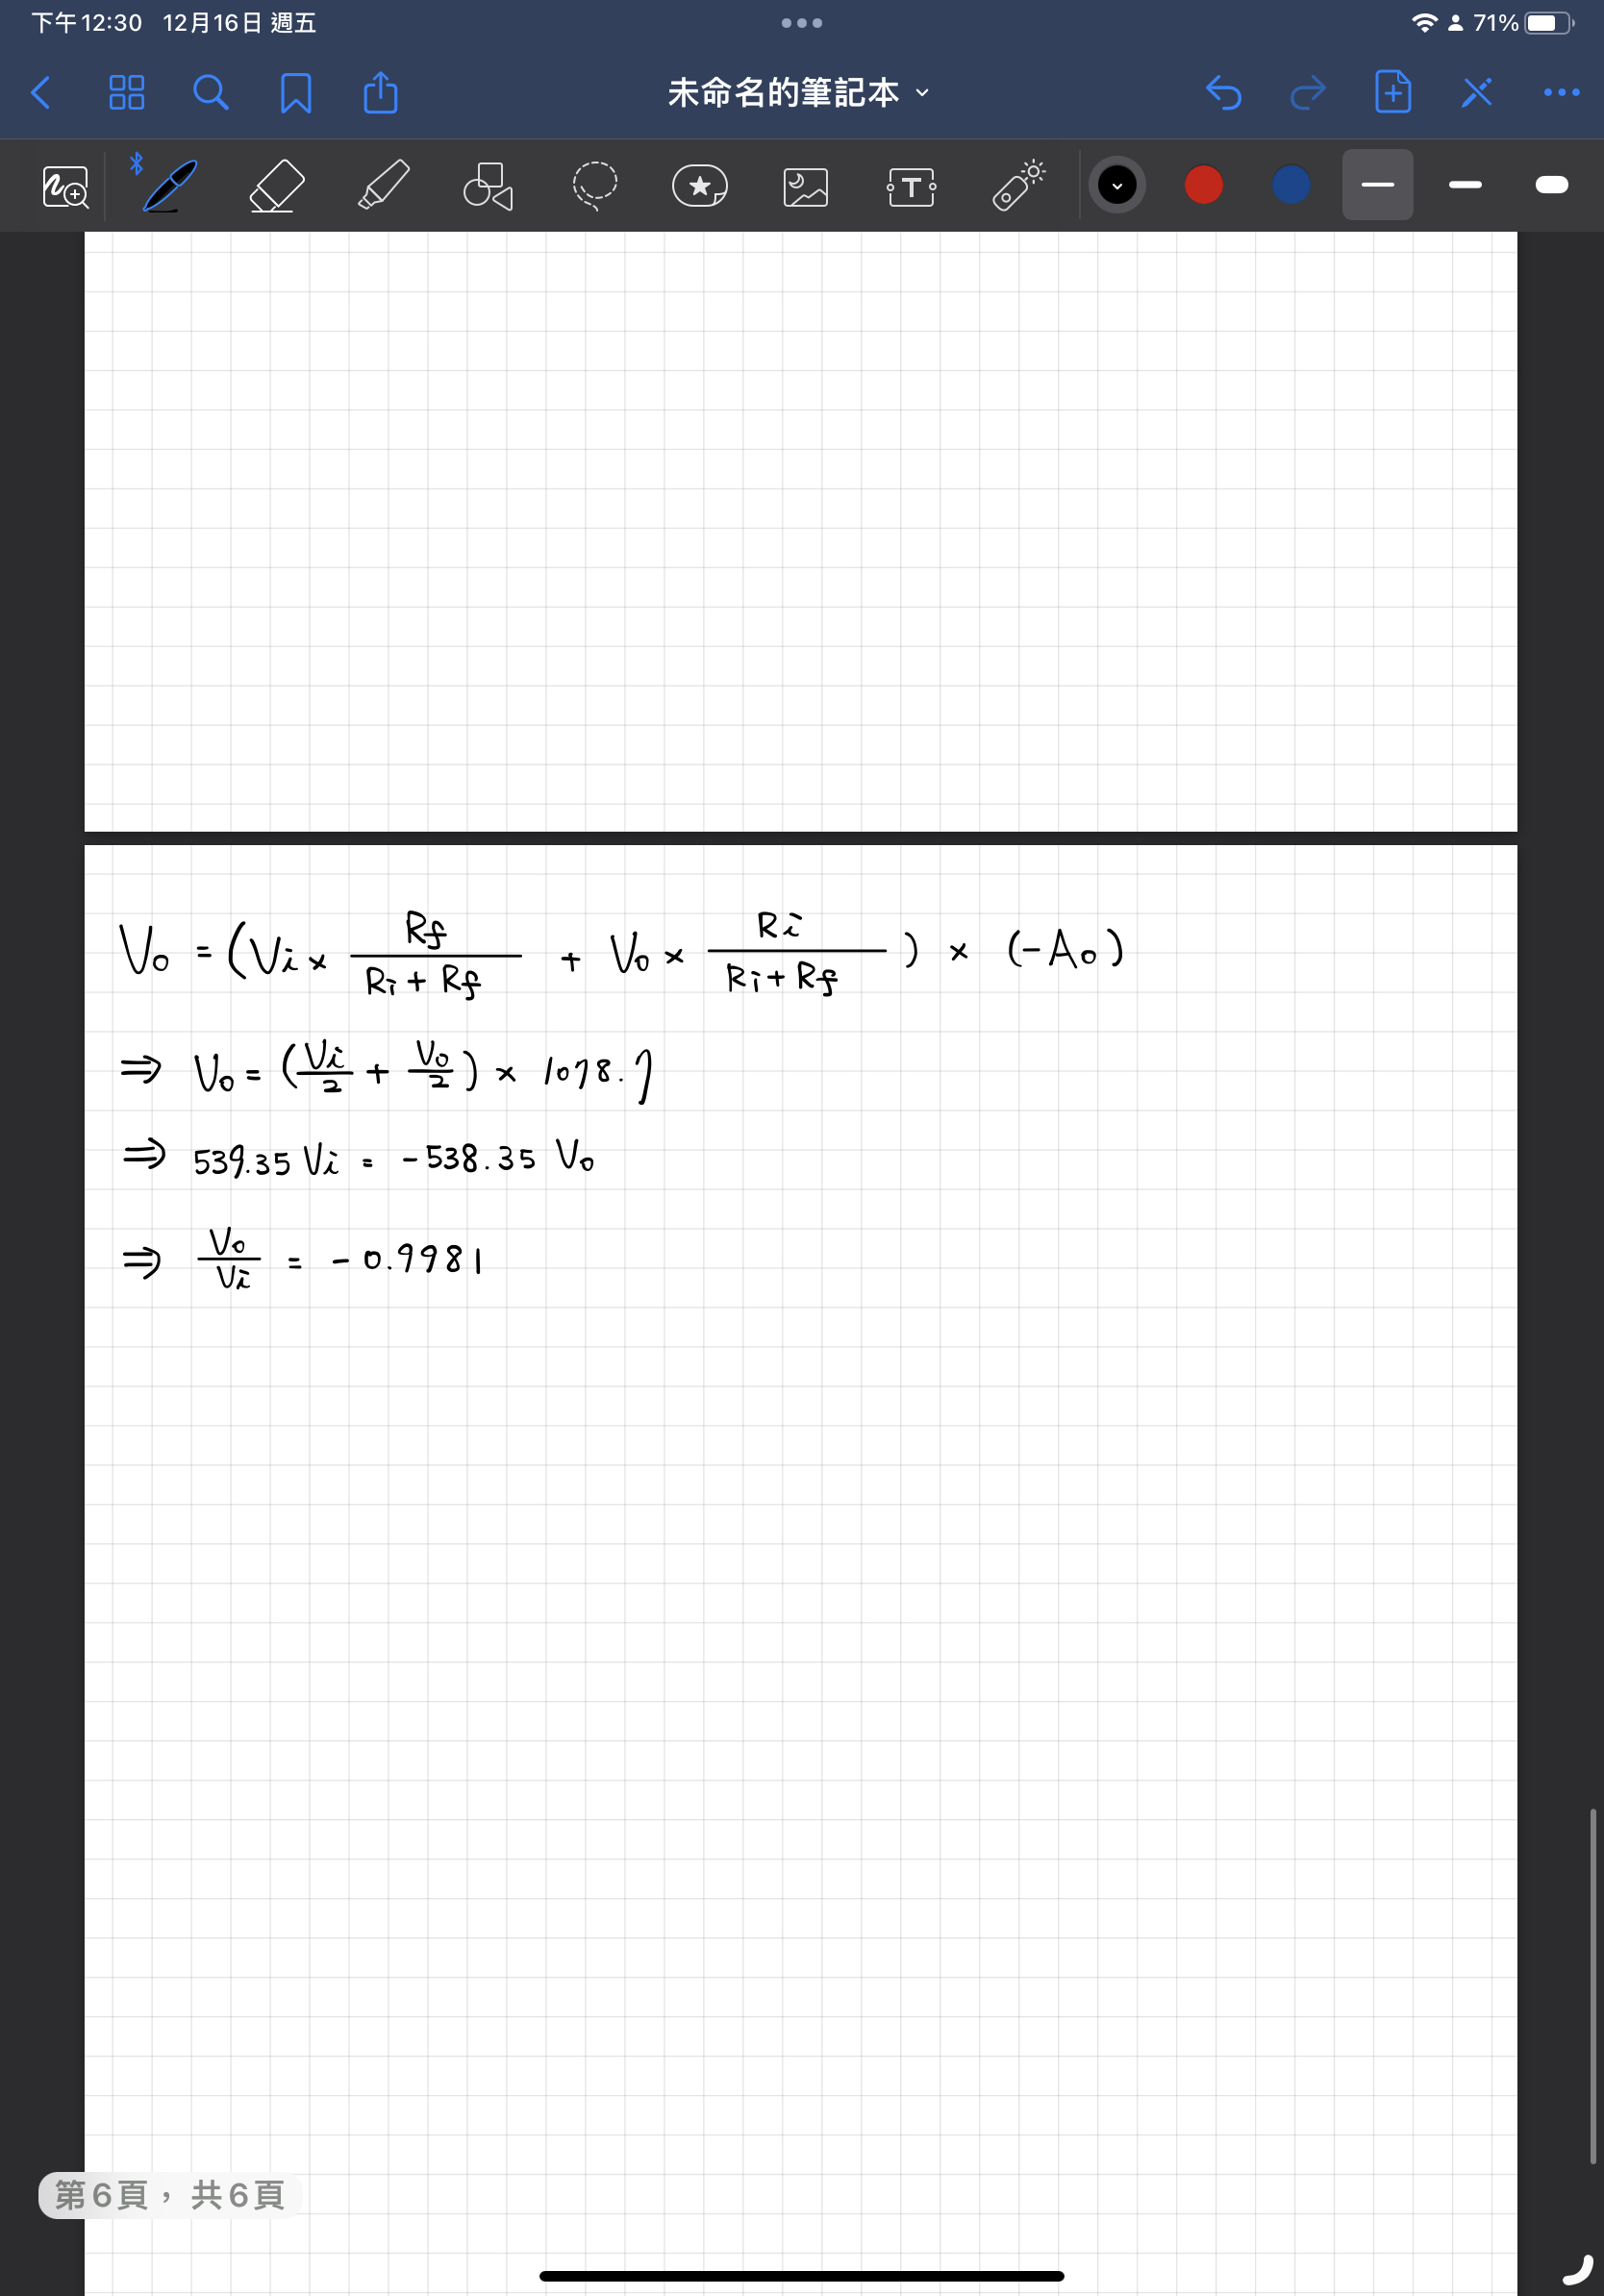 下午12:30 12月16日 週五 71%
未命名的筆記本
T
Vo = (Vi × Rf/(Ri + Rf) + Vo × Ri/(Ri + Rf)) × (-Ao)
⇒ Vo = (Vi/2 + Vo/2) × 1078.7
⇒ 539.35 Vi = -538.35 Vo
⇒ Vo/Vi = -0.9981
第6頁，共6頁